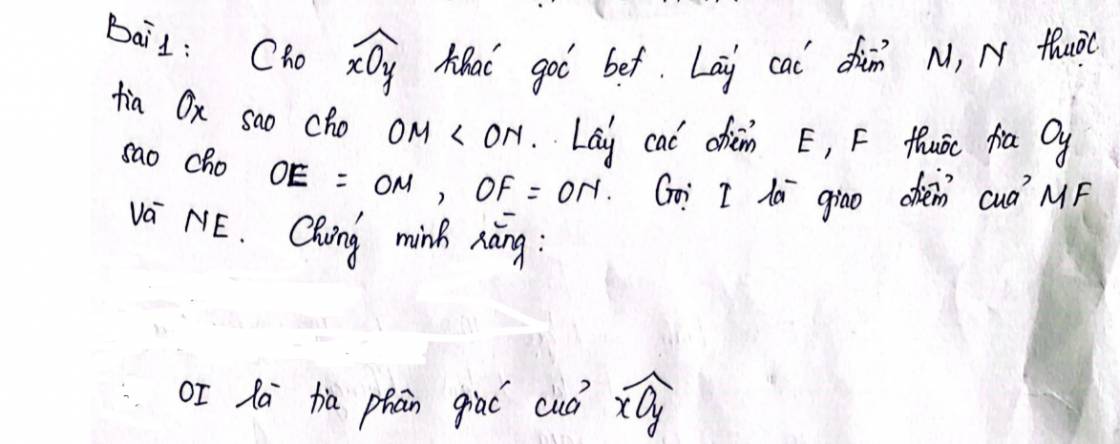 Bài 1: Cho xOy khác góc bẹt. Lấy các điểm M, N thuộc
tia Ox sao cho OM < ON. Lấy các điểm E, F thuộc tia Oy
sao cho OE = OM, OF = ON. Gọi I là giao điểm của MF
và NE. Chứng minh rằng:
OI là tia phân giác của xOy